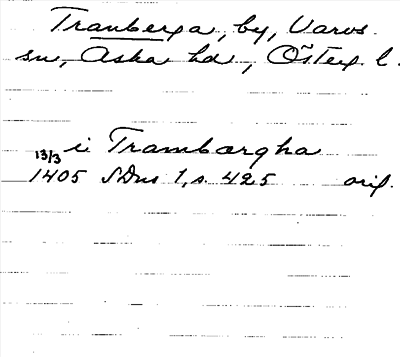 Tranberga, by, Varvs
sn, Aska hd, Österg. l.
i Trambargha
13/3
1405 SDns 1, s. 425 orig.